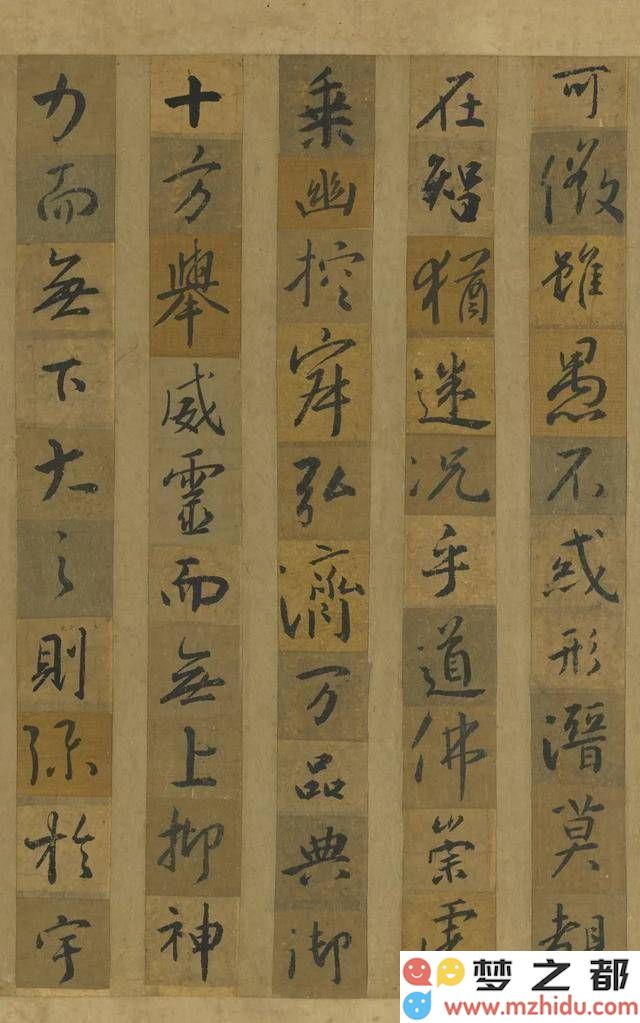 可徵雖愚不惑形潛莫覩
在智猶迷況乎道佛崇虛
乘幽控寂弘濟万品典御
十方舉威靈而無上抑神
力而無下大之則弥於宇
梦之都
www.mzhidu.com